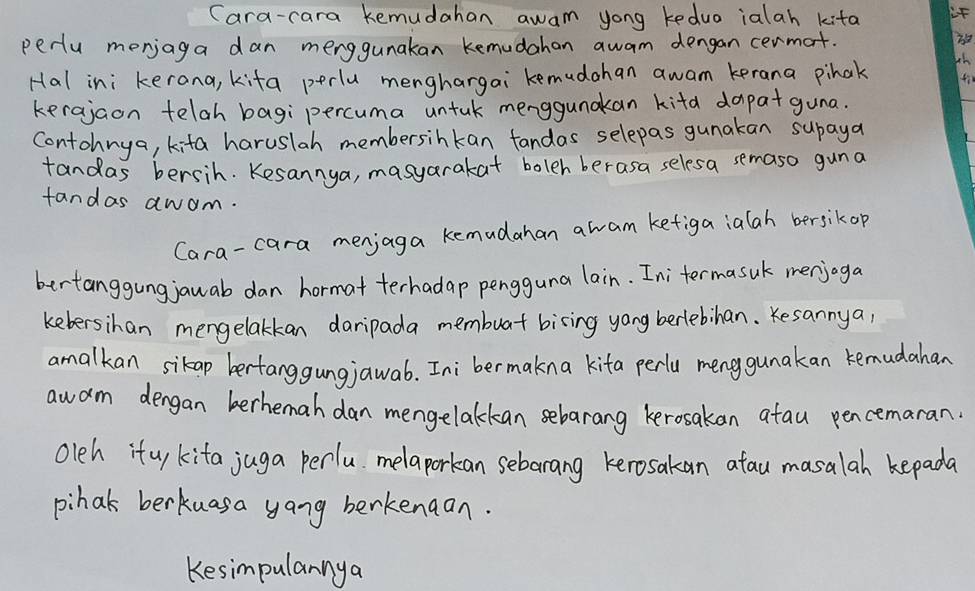 Cara-cara kemudahan awam yong kedua ialah kita
perlu menjaga dan menggunakan kemudahan awam dengan cermat.
Hal ini kerana, kita perlu menghargai kemudahan awam kerana pihak
kerajaan telah bagi percuma untuk menggunakan kita dapat guna.
Contohnya, kita haruslah membersihkan tandas selepas gunakan supaya
tandas bersih. Kesannya, masyarakat boleh berasa selesa semasa guna
tandas awam.
Cara-cara menjaga kemudahan awam ketiga ialah bersikap
bertanggungjawab dan hormat terhadap pengguna lain. Ini termasuk menjaga
kebersihan mengelakkan daripada membuat bising yang berlebihan. Kesannya,
amalkan sikap bertanggungjawab. Ini bermakna kita perlu menggunakan kemudahan
awam dengan berhemah dan mengelakkan sebarang kerosakan atau pencemaran.
Oleh itu, kita juga perlu melaporkan sebarang kerosakan atau masalah kepada
pihak berkuasa yang berkenaan.
Kesimpulannya